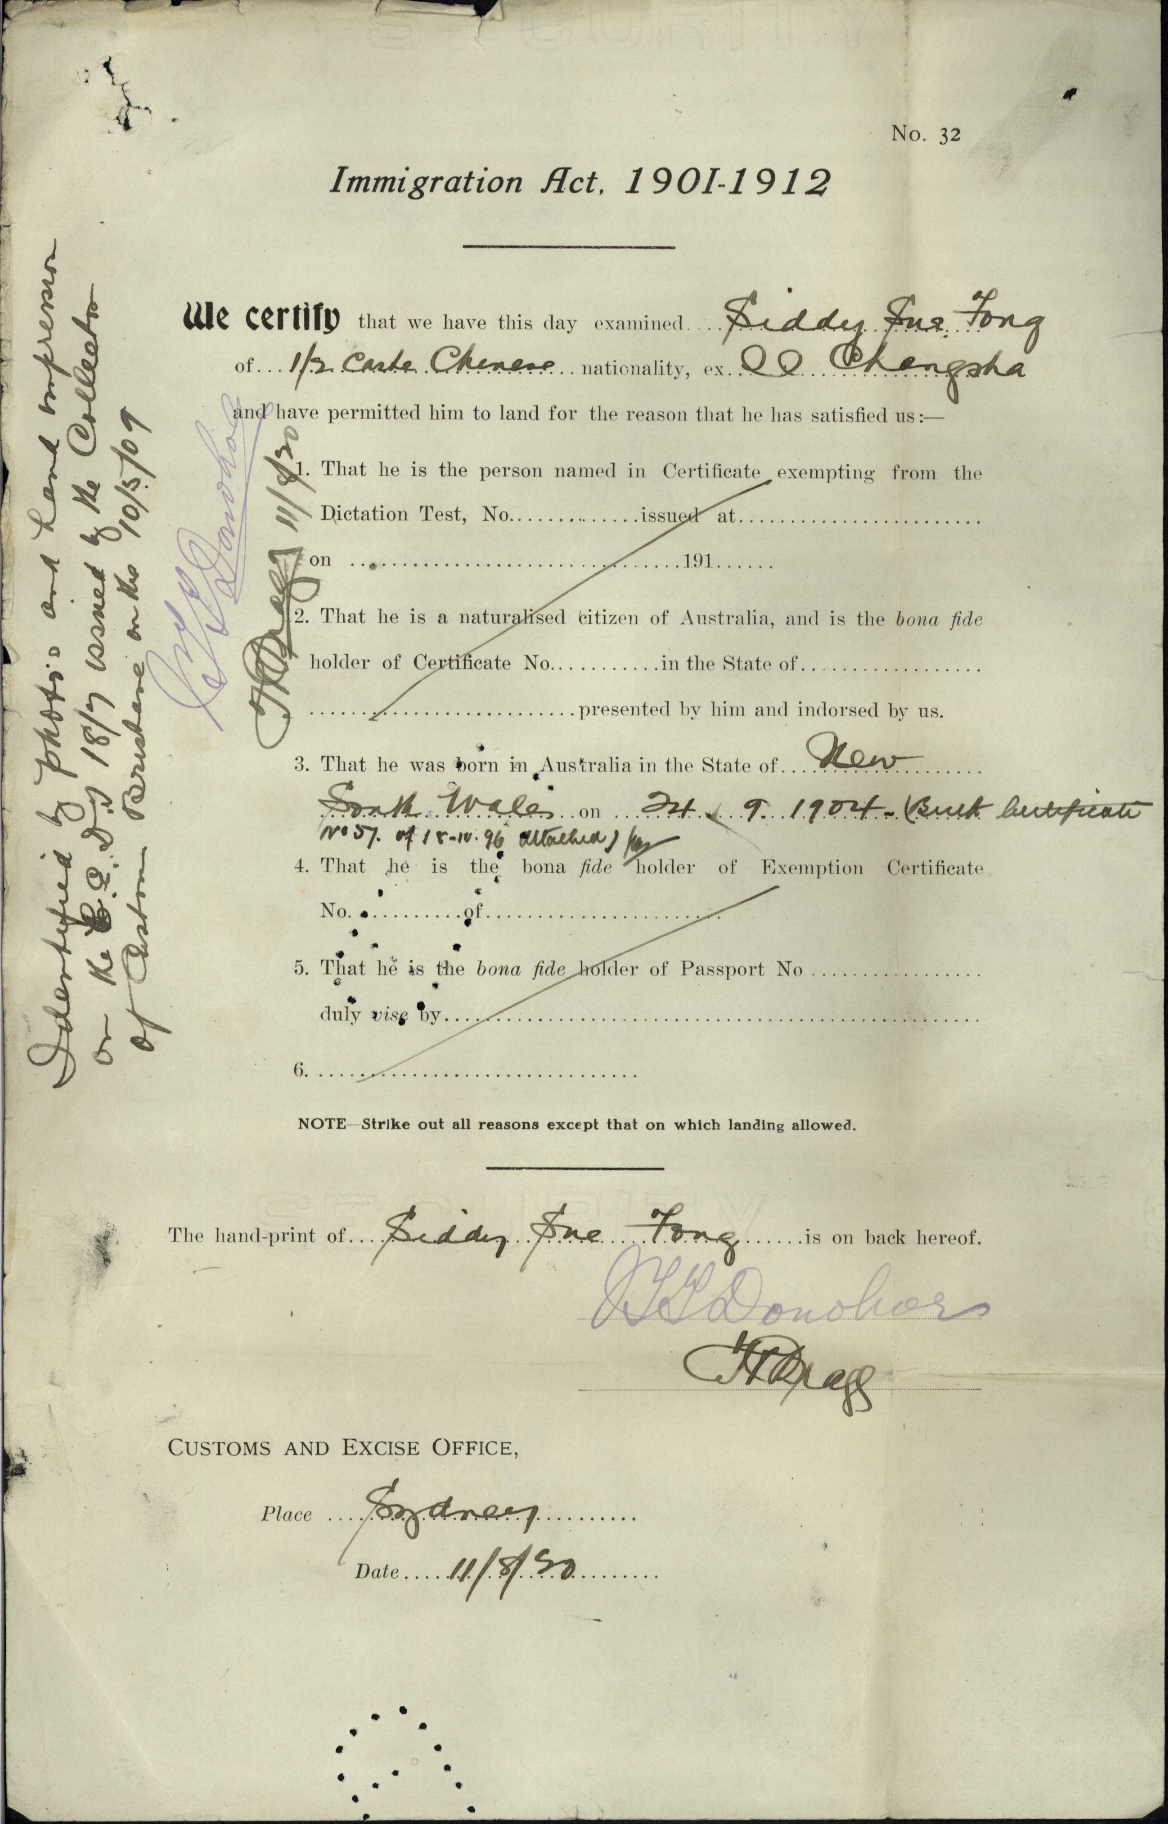 No. 32
Immigration Act, 1901-1912
We certify that we have this day examined Siddy Sue Fong
of 1/2 Caste Chinese nationality, ex SS Changsha
and have permitted him to land for the reason that he has satisfied us:—
1. That he is the person named in Certificate exempting from the
Dictation Test, No. issued at
on 191
2. That he is a naturalised citizen of Australia, and is the bona fide
holder of Certificate No. in the State of
presented by him and indorsed by us.
3. That he was born in Australia in the State of New
South Wales on 24. 9. 1904 - (Birth Certificate
No 57. of 18-10. 96 attached)
4. That he is the bona fide holder of Exemption Certificate
No. of
5. That he is the bona fide holder of Passport No
duly vise by
6.
NOTE—Strike out all reasons except that on which landing allowed.
The hand-print of Siddy Sue Fong is on back hereof.
Donohoe
Gragg
CUSTOMS AND EXCISE OFFICE,
Place Sydney
Date 11/8/20
Identified by photos and hand impression
on the C.E.D.T 18/7 issued by the Collector
of Customs Brisbane on the 10/5/09
Donohoe
Gragg 11/8/20